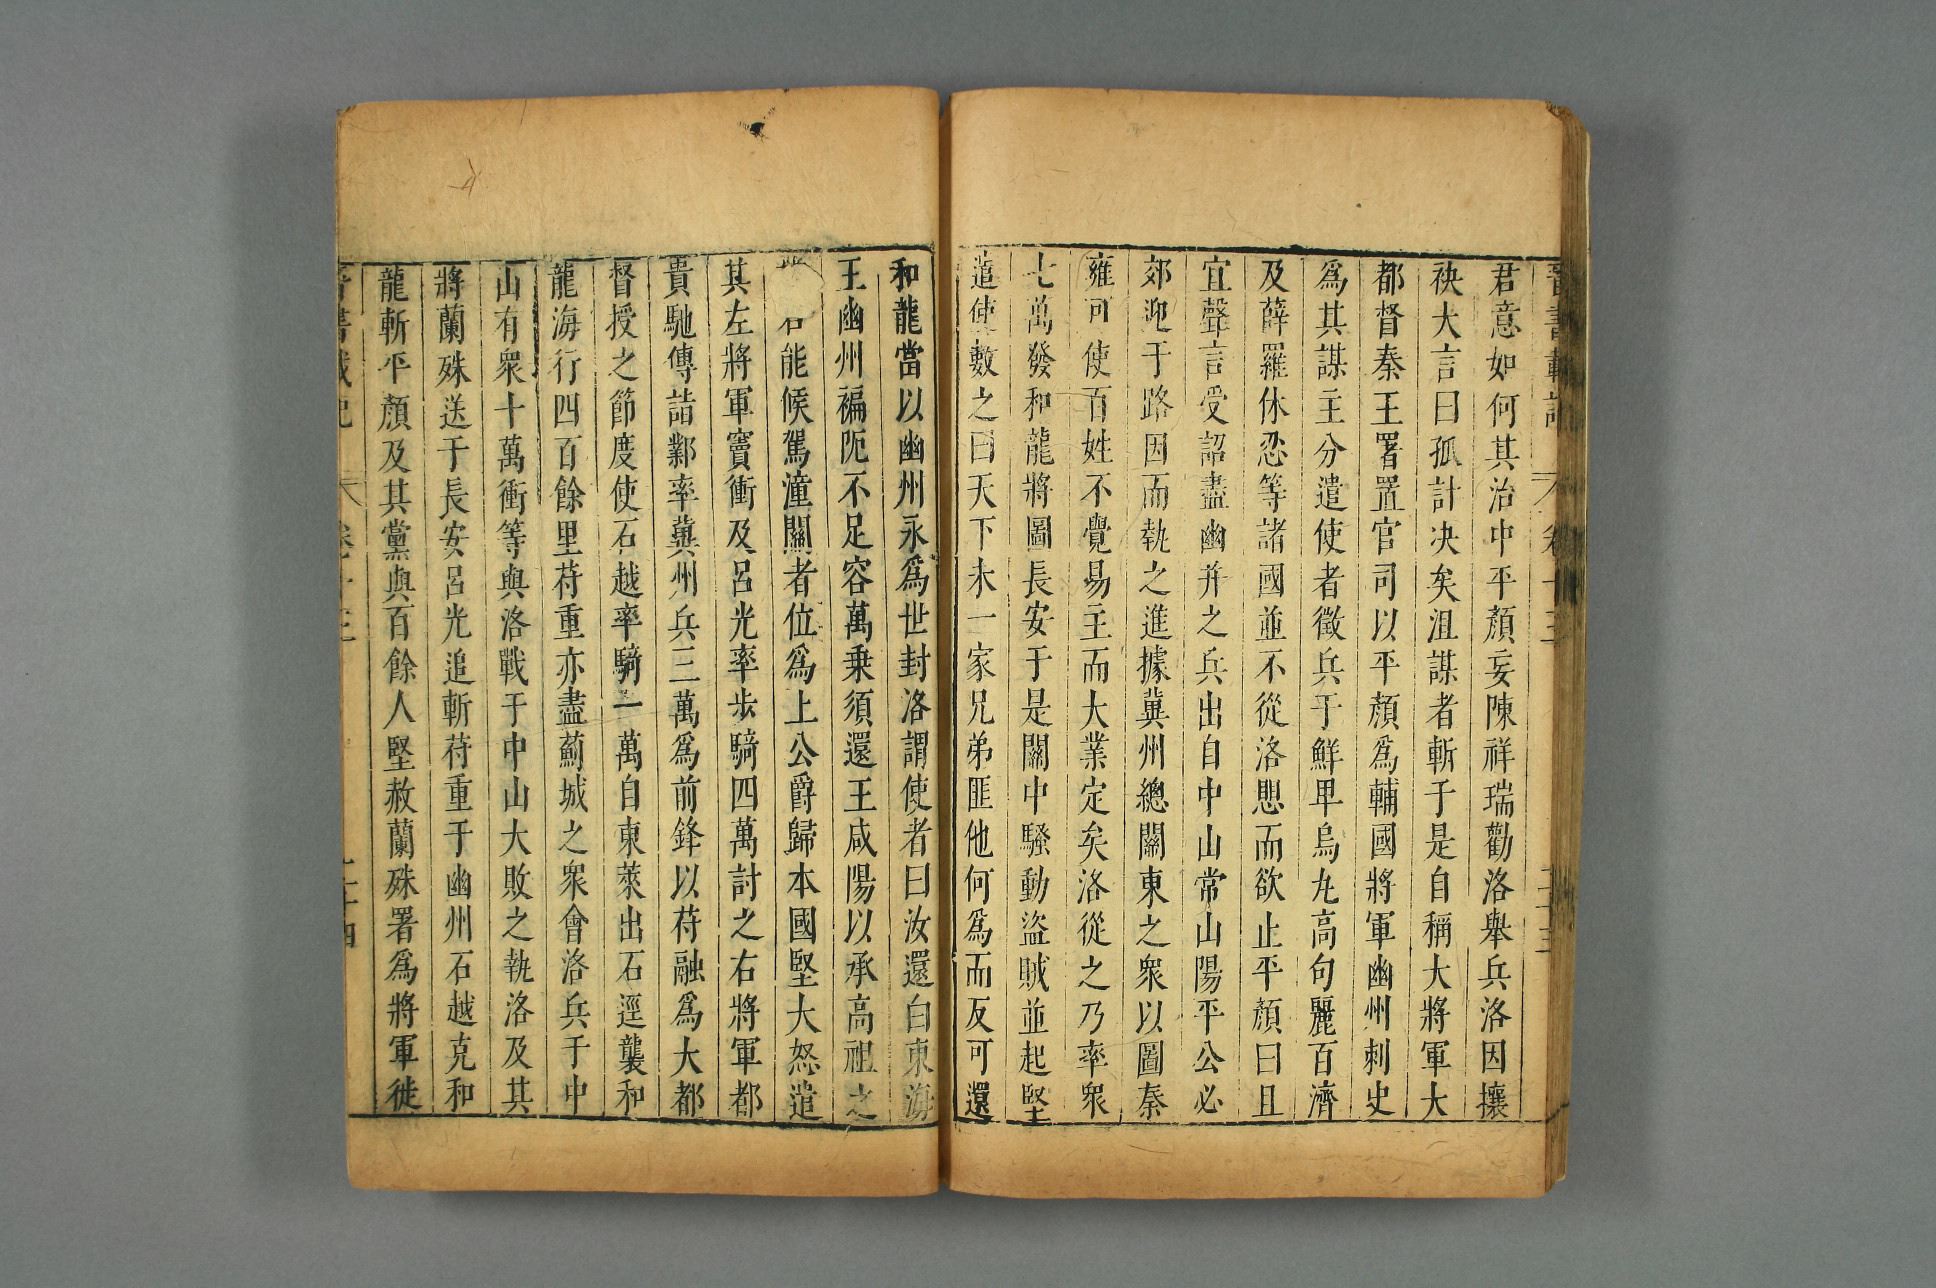 晉書載記 卷十三 二十三
君意如何其治中平顏妄陳祥瑞勸洛舉兵洛因攘
袂大言曰孤計決矣沮謀者斬于是自稱大將軍大
都督秦王署置官司以平顏爲輔國將軍幽州刺史
爲其謀主分遣使者徵兵于鮮卑烏丸高句麗百濟
及薛羅休忍等諸國並不從洛懼而欲止平顏曰且
宜聲言受詔盡幽并之兵出自中山常山陽平公必
郊迎于路因而執之進據冀州總關東之衆以圖秦
雍可使百姓不覺易主而大業定矣洛從之乃率衆
七萬發和龍將圖長安于是關中騷動盜賊並起堅
遣使數之曰天下未一家兄弟匪他何爲而反可還
和龍當以幽州永爲世封洛謂使者曰汝還白東海
王幽州褊阨不足容萬乗須還王咸陽以承高祖之
能候駕潼關者位爲上公爵歸本國堅大怒遣
其左將軍竇衝及呂光率步騎四萬討之右將軍都
貴馳傳詣鄴率冀州兵三萬爲前鋒以苻融爲大都
督授之節度使石越率騎一萬自東萊出石逕襲和
龍海行四百餘里苻重亦盡薊城之衆會洛兵于中
山有衆十萬衝等與洛戰于中山大敗之執洛及其
將蘭殊送于長安呂光追斬苻重于幽州石越克和
龍斬平顏及其黨與百餘人堅赦蘭殊署爲將軍徙